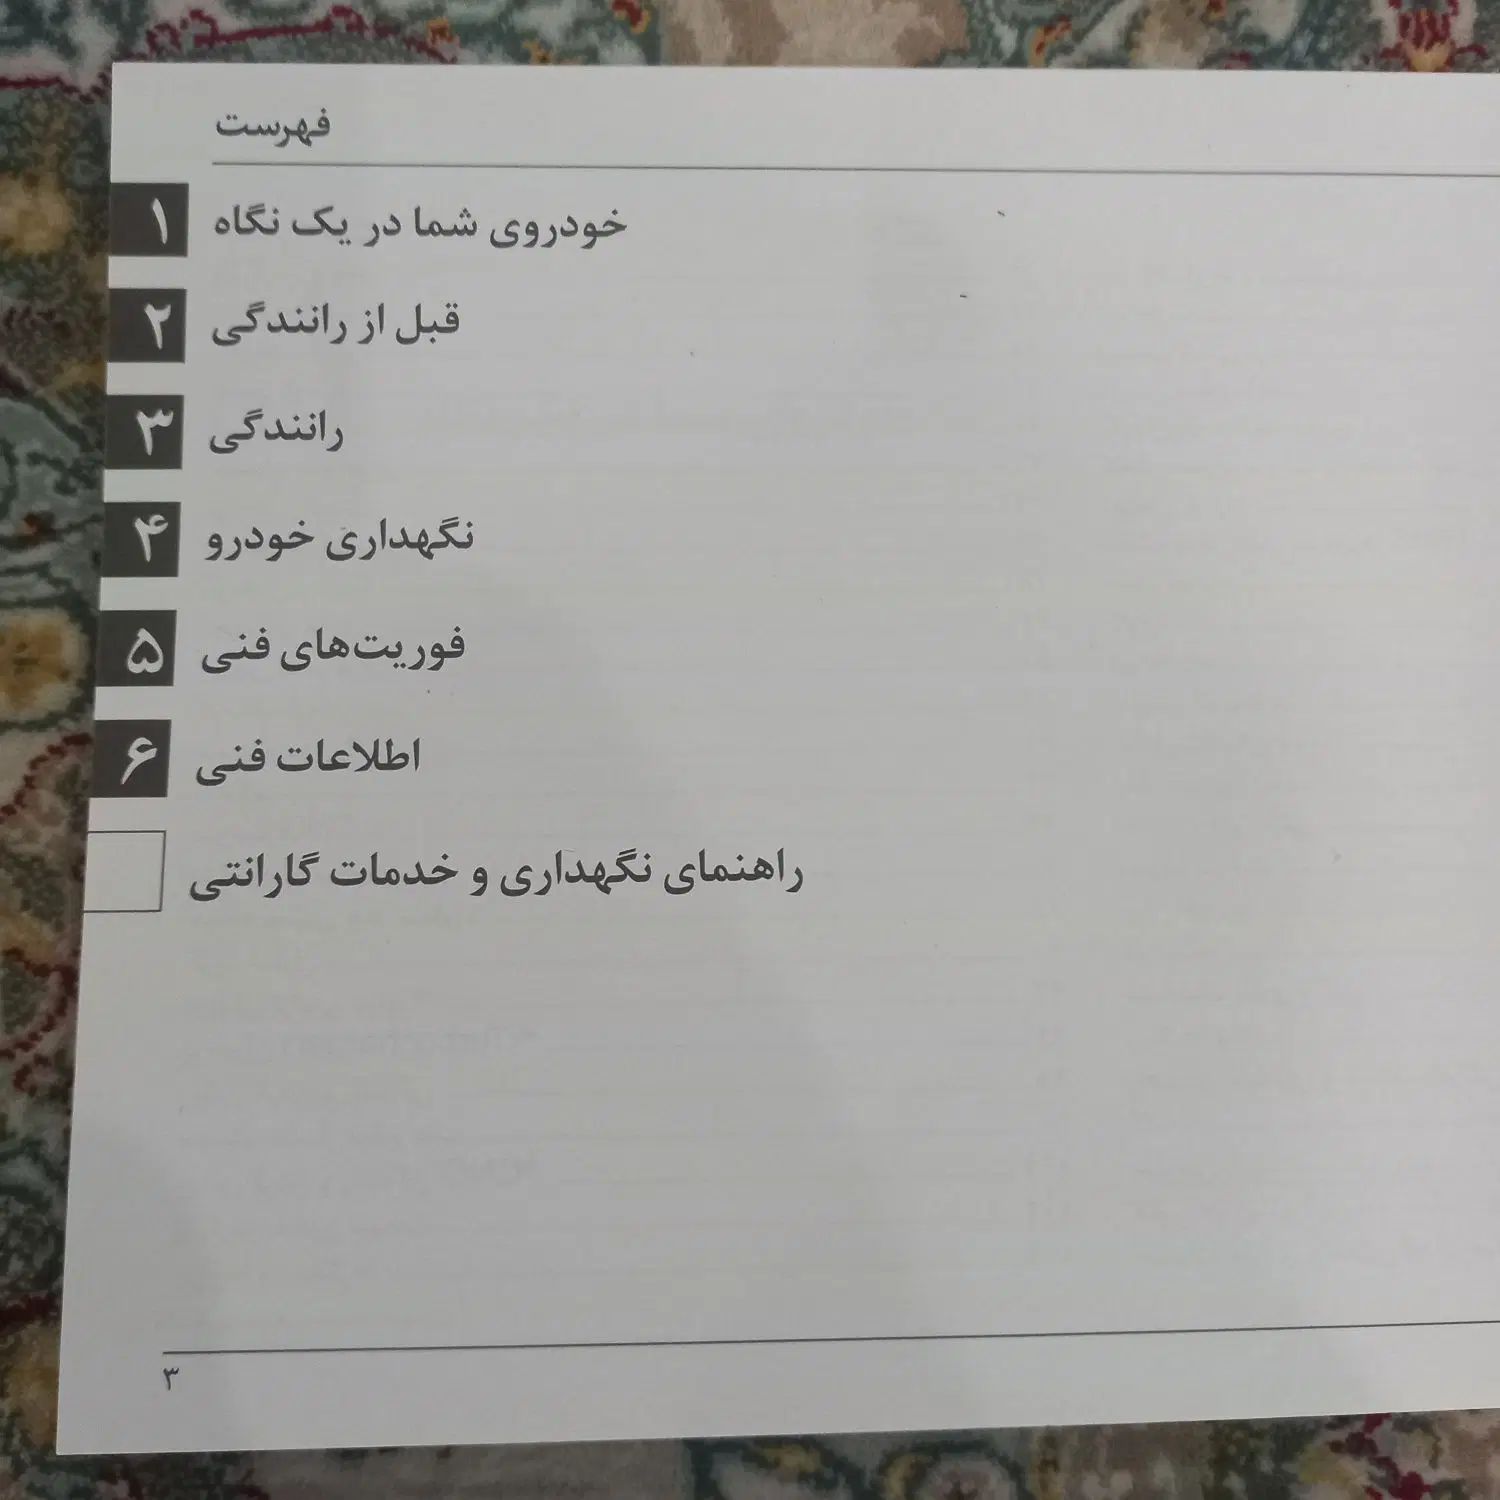 فهرست
۱ خودروی شما در یک نگاه
۲ قبل از رانندگی
۳ رانندگی
۴ نگهداری خودرو
۵ فوریت‌های فنی
۶ اطلاعات فنی
راهنمای نگهداری و خدمات گارانتی
۳